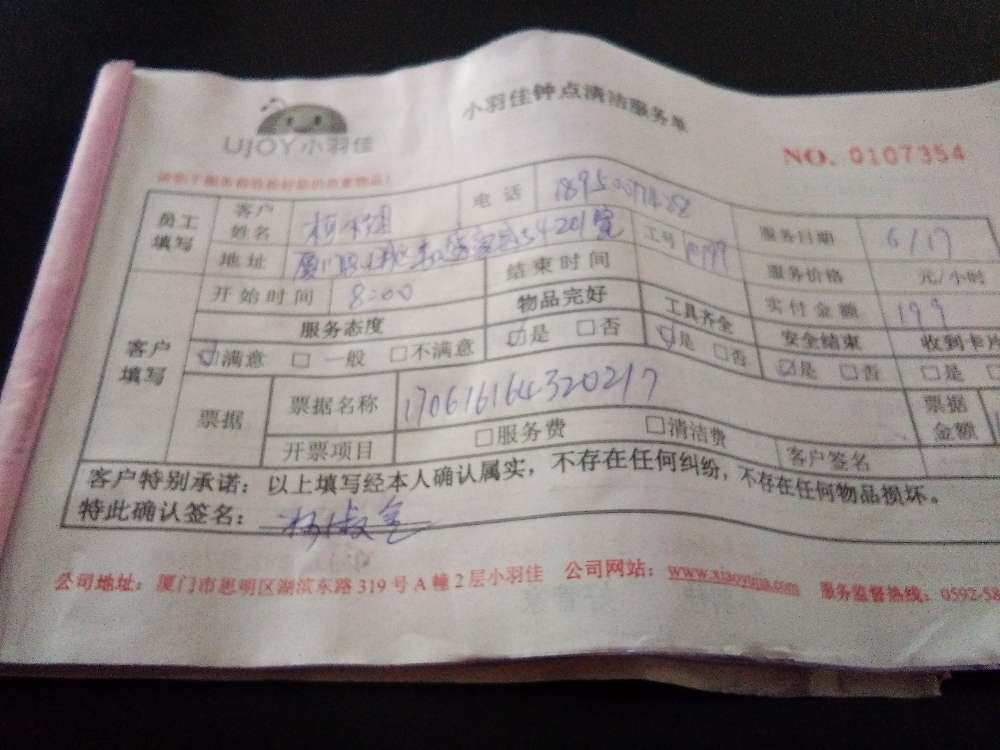 UJOY 小羽佳
小羽佳钟点清洁服务单
NO. 0107354
员工填写 客户姓名 电话 服务日期 6/17
地址 201室 工号 服务价格 元/小时
客户填写 开始时间 8:00 结束时间 实付金额 199
服务态度 物品完好 工具齐全 安全结束 收到卡片
☑满意 □一般 □不满意 ☑是 □否 ☑是 □否 ☑是 □否 □是
票据 票据名称 170616164320217 票据金额
开票项目 □服务费 □清洁费 客户签名
客户特别承诺：以上填写经本人确认属实，不存在任何纠纷，不存在任何物品损坏。
特此确认签名：
公司地址：厦门市思明区湖滨东路 319 号 A 幢 2 层小羽佳 公司网站：www.xiaoyujia.com 服务监督热线：0592-58